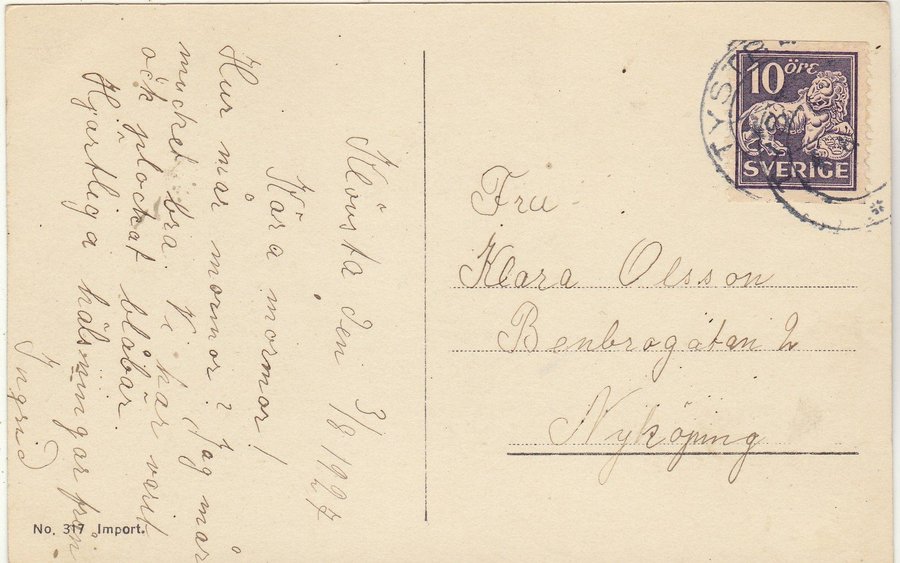 Klövsta den 3/8 1927
Kära mormor!
Hur mår mormor? Jag mår
mucket bra. Vi har varit
ock plockat blåbär.
Hjärtliga hälsningar från
Ingrid
No. 317 Import.
10 ÖRE
SVERIGE
TYST
Fru
Klara Olsson
Benbrogatan 2
Nyköping